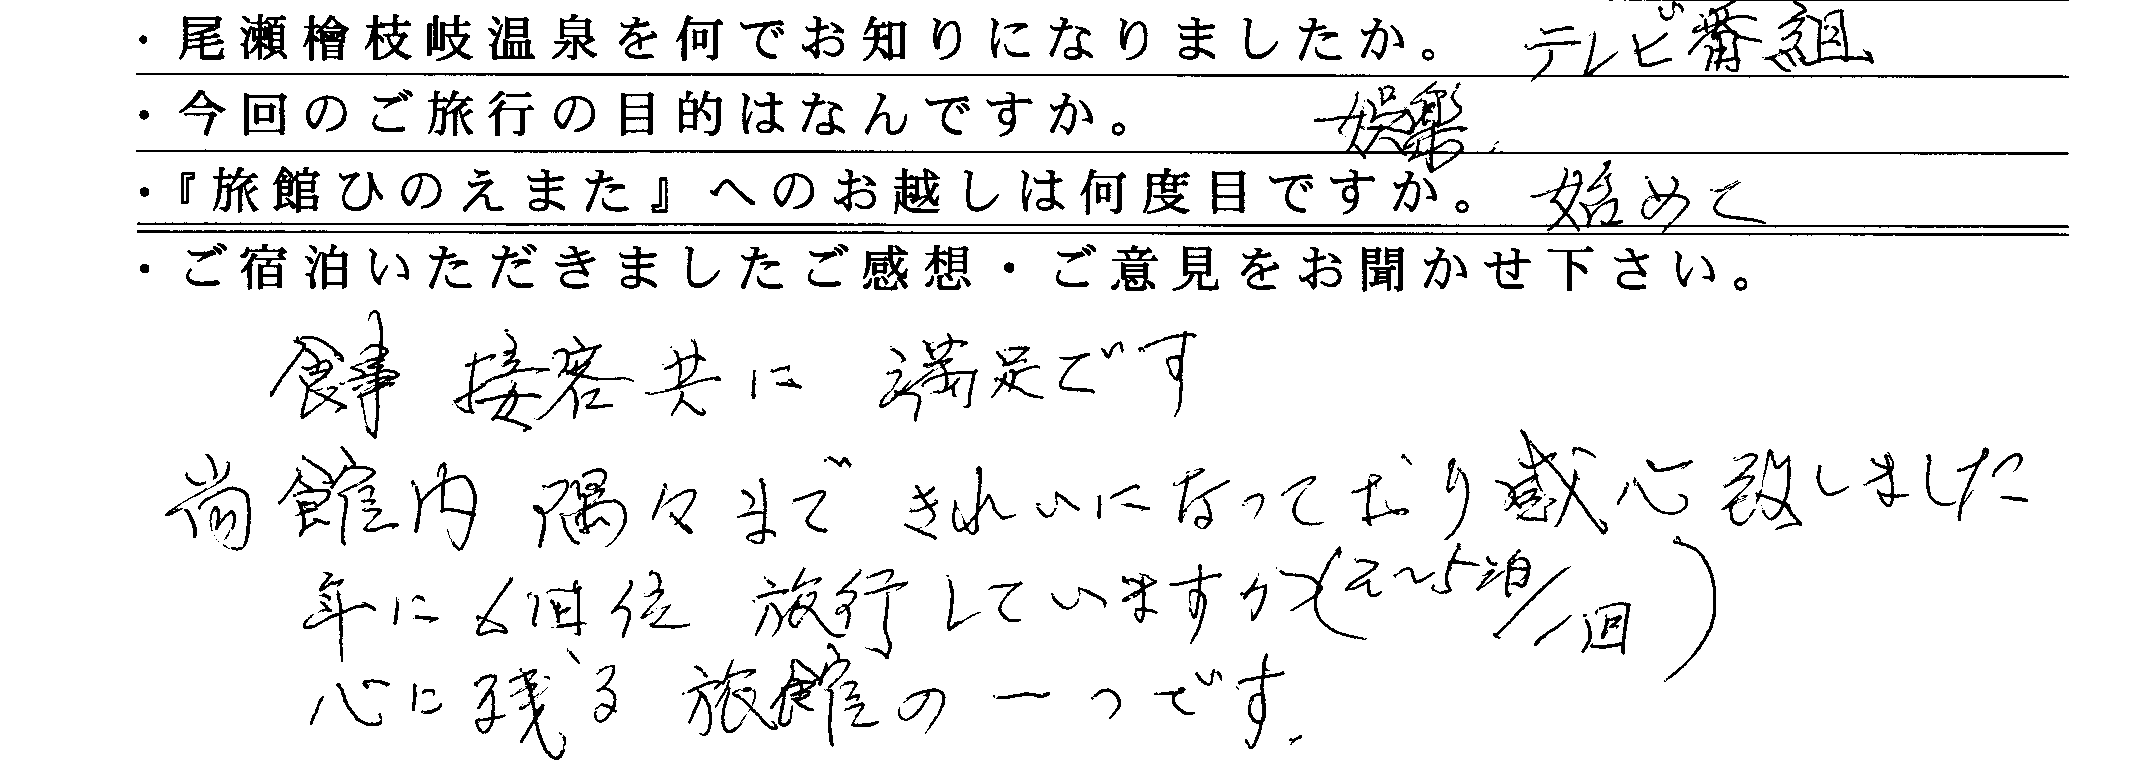 ・尾瀬檜枝岐温泉を何でお知りになりましたか。 テレビ番組
・今回のご旅行の目的はなんですか。 娯楽.
・『旅館ひのえまた』へのお越しは何度目ですか。 始めて
・ご宿泊いただきましたご感想・ご意見をお聞かせ下さい。
食事 接客共に 満足です
尚館内 隅々まで きれいになっており感心致しました
年に6回位 旅行していますが(2〜5泊/1回)
心に残る 旅館の一つです.